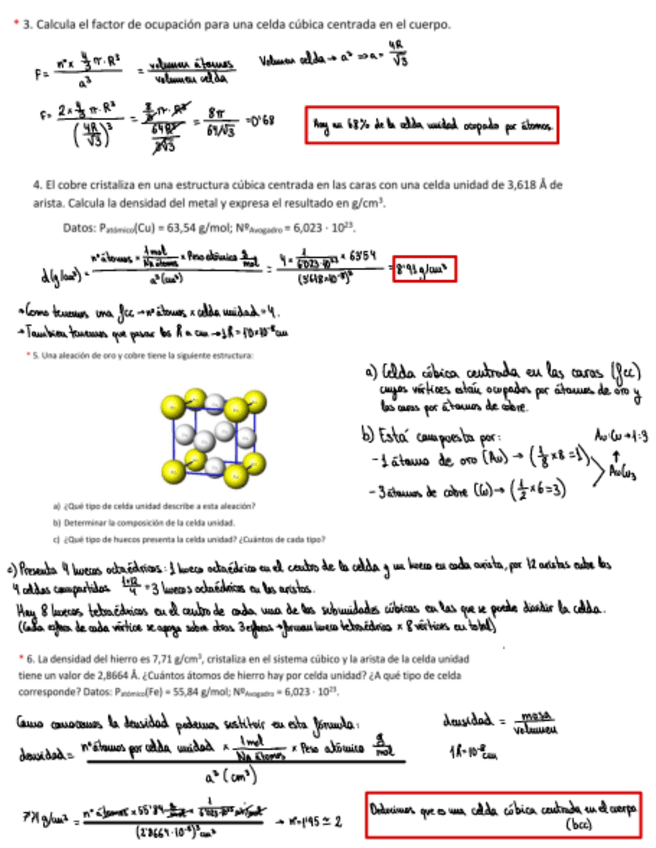 * 3. Calcula el factor de ocupación para una celda cúbica centrada en el cuerpo.
F = nº x 4/3 π · R³ / a³ = volumen átomos / volumen celda Volumen celda → a³ ⇒ a = 4R/√3
F = 2 x 4/3 π · R³ / (4R/√3)³ = 8/3 π · R³ / 64R³/3√3 = 8π / 64/√3 = 0'68
Hay un 68% de la celda unidad ocupado por átomos.
4. El cobre cristaliza en una estructura cúbica centrada en las caras con una celda unidad de 3,618 Å de
arista. Calcula la densidad del metal y expresa el resultado en g/cm³.
Datos: Patómico(Cu) = 63,54 g/mol; NºAvogadro = 6,023 · 10²³.
d(g/cm³) = nº átomos x 1 mol / NA átomos x Peso atómico g/mol / a³(cm³) = 4 x 1 / 6'023·10²³ x 63'54 / (3'618x10⁻⁸)³ = 8'91 g/cm³
→ Como tenemos una fcc → nº átomos x celda unidad = 4.
→ También tenemos que pasar los Å a cm → 1Å = 1·10⁻⁸ cm
* 5. Una aleación de oro y cobre tiene la siguiente estructura:
a) Celda cúbica centrada en las caras (fcc)
cuyos vértices están ocupados por átomos de oro y
las caras por átomos de cobre.
b) Está compuesta por: Au:Cu → 1:3
- 1 átomo de oro (Au) → (1/8 x 8 = 1) AuCu₃
- 3 átomos de cobre (Cu) → (1/2 x 6 = 3)
a) ¿Qué tipo de celda unidad describe a esta aleación?
b) Determinar la composición de la celda unidad.
c) ¿Qué tipo de huecos presenta la celda unidad? ¿Cuántos de cada tipo?
c) Presenta 4 huecos octaédricos: 1 hueco octaédrico en el centro de la celda y un hueco en cada arista, por 12 aristas entre las
4 celdas compartidas 1x12/4 = 3 huecos octaédricos en las aristas.
Hay 8 huecos tetraédricos en el centro de cada una de las subunidades cúbicas en las que se puede dividir la celda.
(Cada esfera de cada vértice se apoya sobre otras 3 esferas → forman hueco tetraédrico x 8 vértices en total)
* 6. La densidad del hierro es 7,71 g/cm³, cristaliza en el sistema cúbico y la arista de la celda unidad
tiene un valor de 2,8664 Å. ¿Cuántos átomos de hierro hay por celda unidad? ¿A qué tipo de celda
corresponde? Datos: Patómico(Fe) = 55,84 g/mol; NºAvogadro = 6,023 · 10²³.
Como conocemos la densidad podemos sustituir en esta fórmula: densidad = masa / volumen
densidad = nº átomos por celda unidad x 1 mol / NA átomos x Peso atómico g/mol / a³ (cm³) 1Å = 10⁻⁸ cm
7'71 g/cm³ = nº átomos x 55'84 g/mol x 1 / 6'023·10²³ at/mol / (2'8664·10⁻⁸)³ cm³ → n = 1'95 ≃ 2
Deducimos que es una celda cúbica centrada en el cuerpo
(bcc)